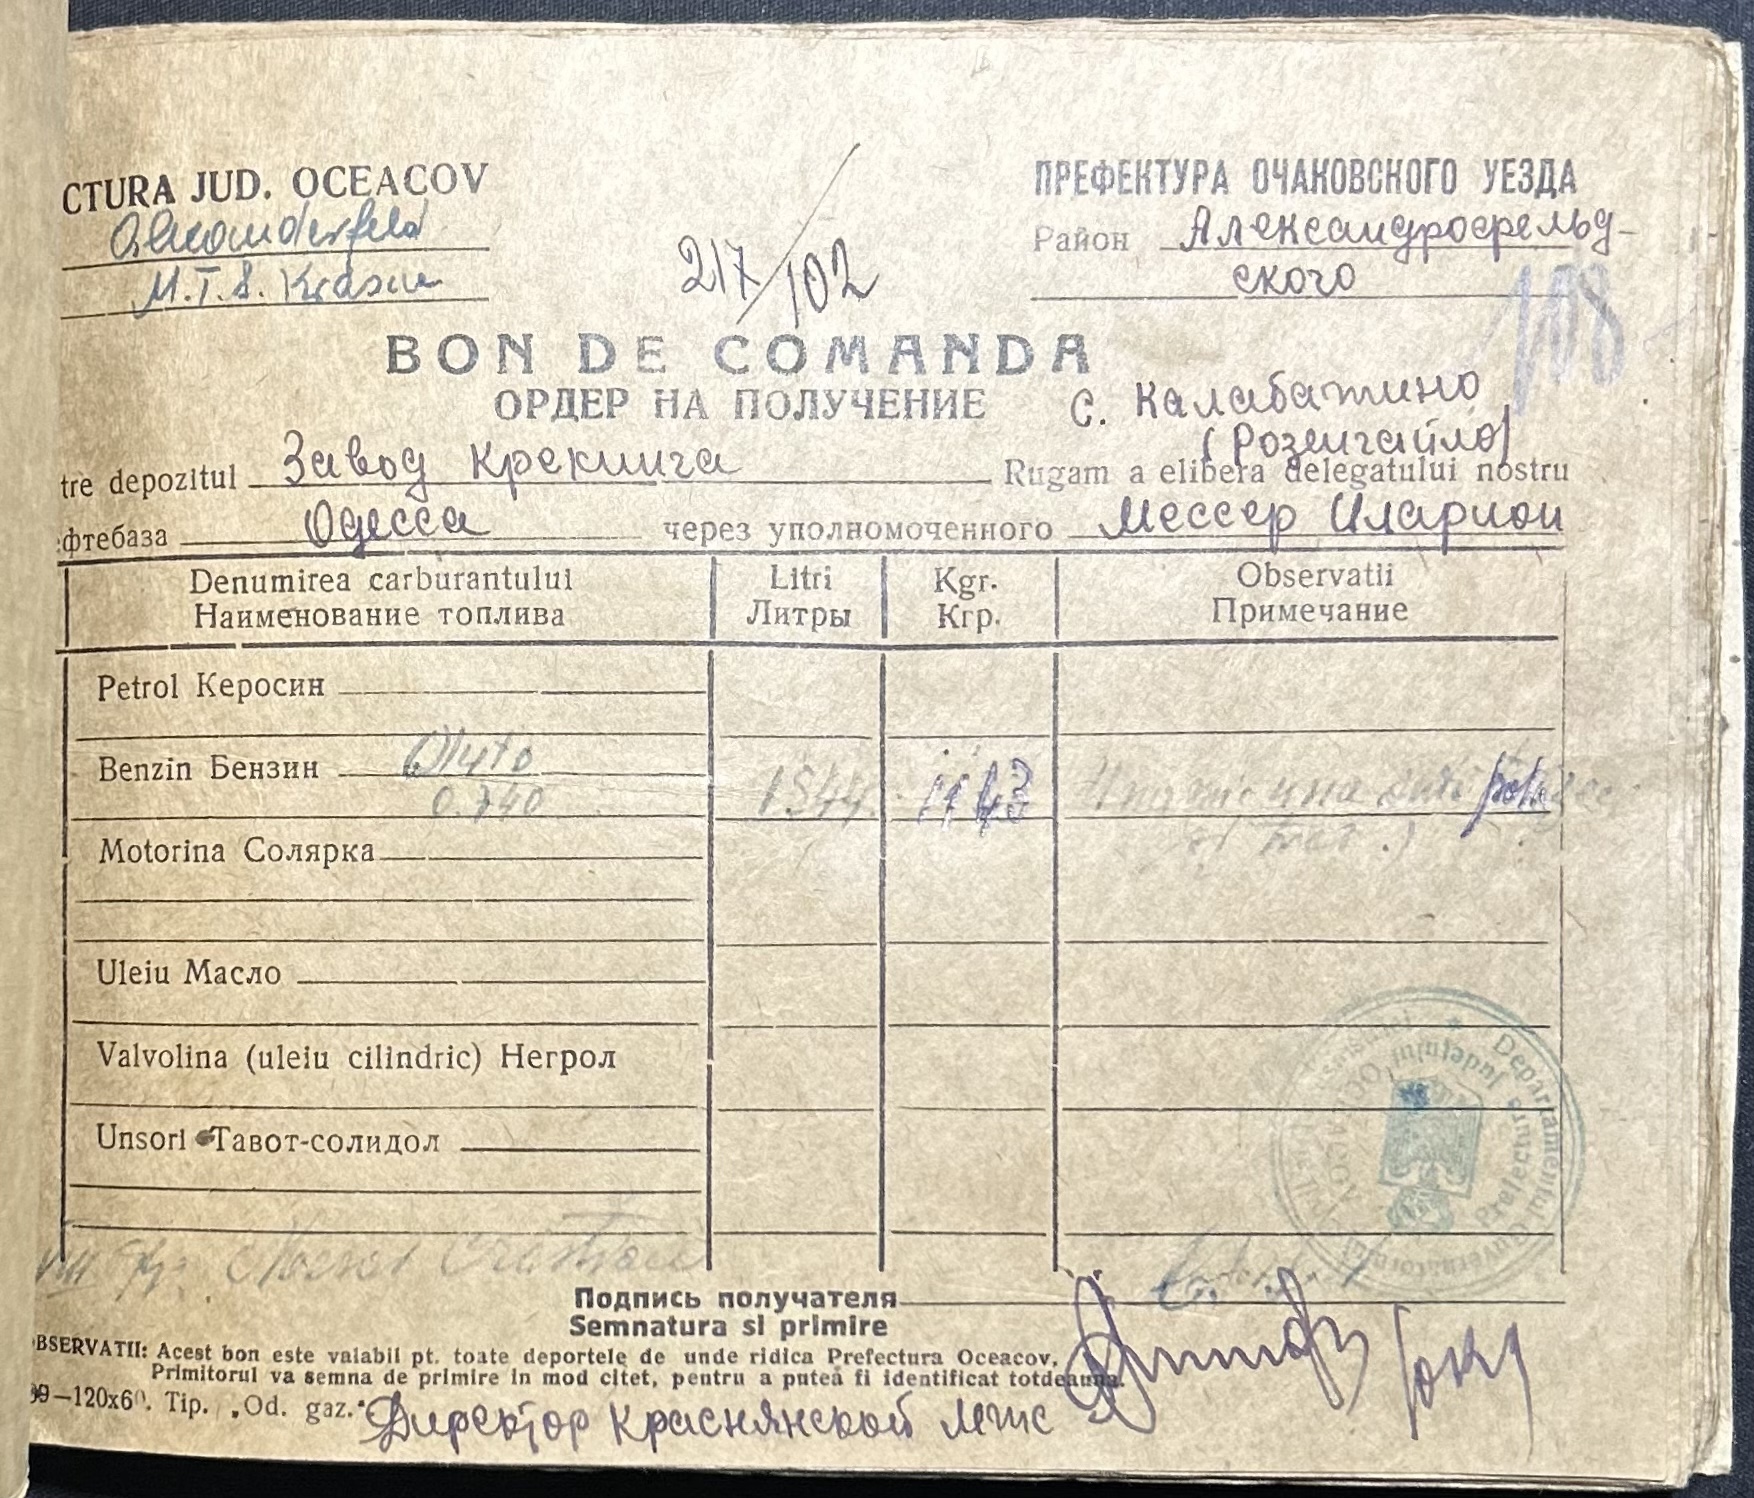 CTURA JUD. OCEACOV
ПРЕФЕКТУРА ОЧАКОВСКОГО УЕЗДА
Alexanderfeld
Район Александрофельд-
M.T.S. Krasna
ского
217/102
108
BON DE COMANDA
ОРДЕР НА ПОЛУЧЕНИЕ
с. Калабатино
(Розенгайло)
tre depozitul Завод Крекинга Rugam a elibera delegatului nostru
фтебаза Одесса через уполномоченного Мессер Иларион
Denumirea carburantului Litri Kgr. Observatii
Наименование топлива Литры Кгр. Примечание
Petrol Керосин
Benzin Бензин 1544 1143
0.740
Motorina Солярка
Uleiu Масло
Valvolina (uleiu cilindric) Негрол
Unsori Тавот-солидол
Guvernatorul Departamentul
Prefectura Județului
OCEACOV
Подпись получателя
Semnatura si primire
BSERVATII: Acest bon este valabil pt. toate deportele de unde ridica Prefectura Oceacov.
Primitorul va semna de primire in mod citet, pentru a putea fi identificat totdeauna.
99—120x60. Tip. „Od. gaz."
Директор Краснянской мтс